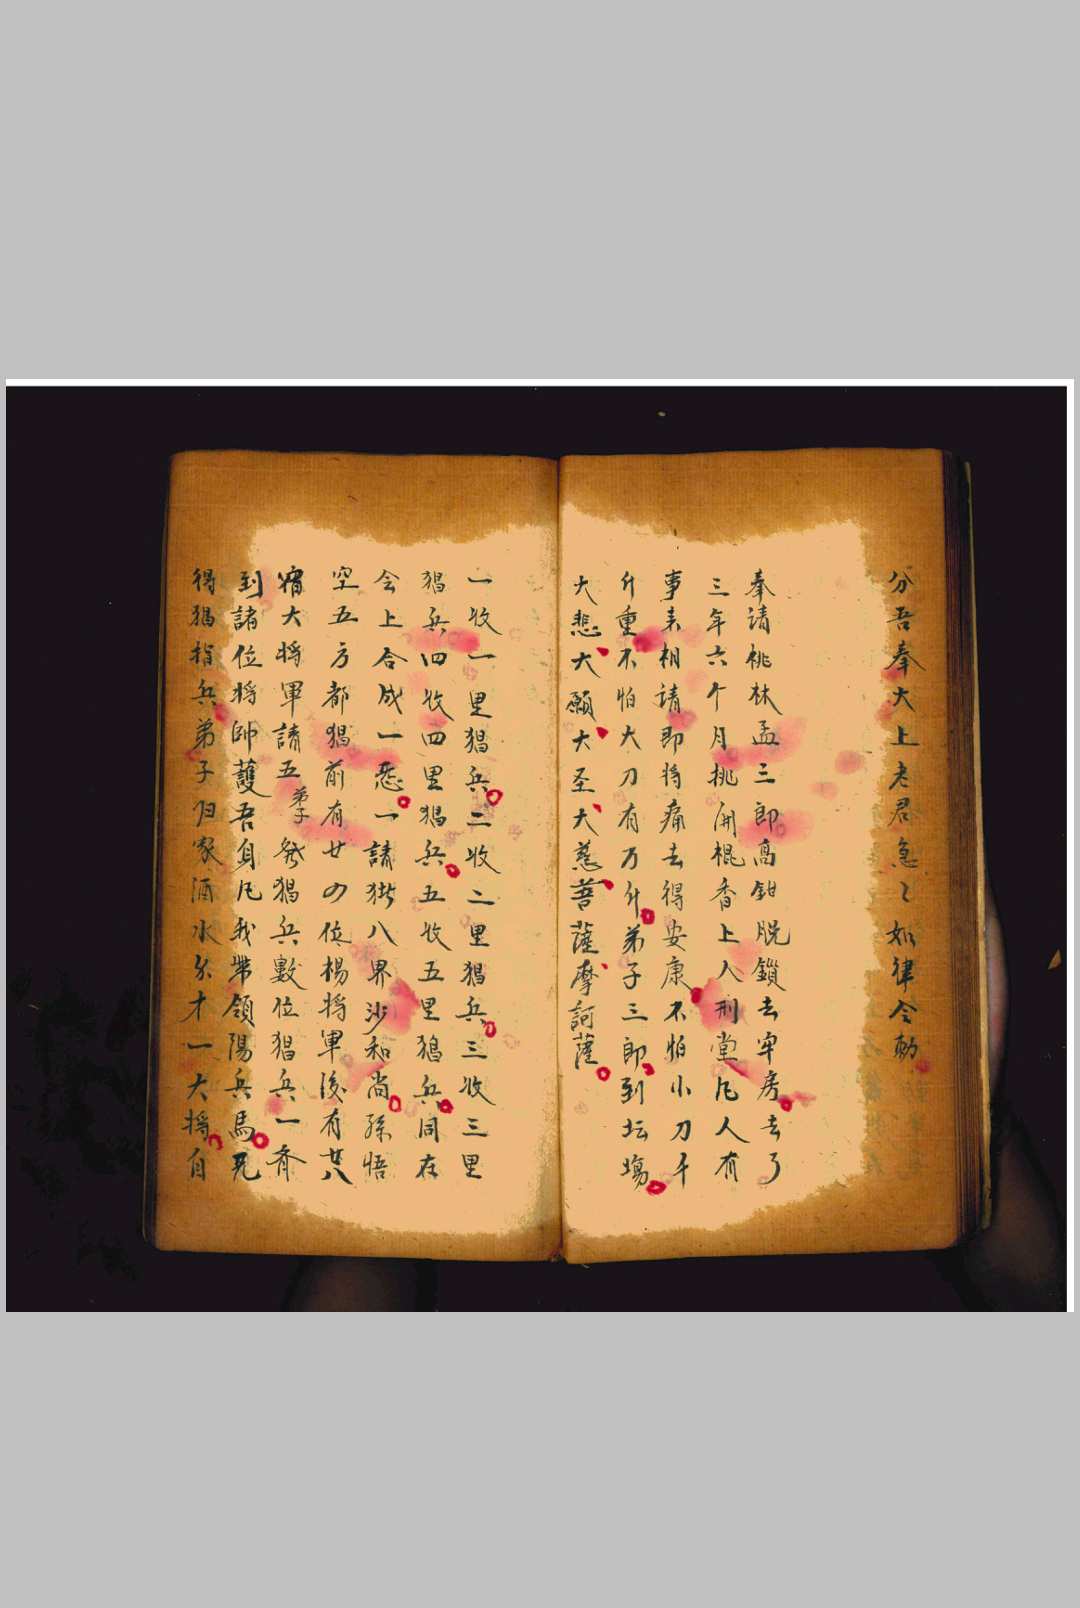 分吾奉大上老君急々如律令勅
奉請桃林孟三郎高鉗脱鎖去牢房去了
三年六个月挑開棍香上人刑堂凡人有
事来相請即将痛去得安康不怕小刀千
斤重不怕大刀有万斤弟子三郎到坛塲
大悲大願大圣大慈菩薩摩訶薩
一收一里猖兵二收二里猖兵三收三里
猖兵四收四里猖兵五收五里猖兵同在
会上合成一一請猪八界沙和尚孫悟
空五方都猖前有廿四位楊将軍後有廿八
宿大将軍請五弟子發猖兵數位猖兵一齊
到諸位将帥護吾身凡我帶領陽兵馬
得猖指兵弟子归家酒水分才一大将自